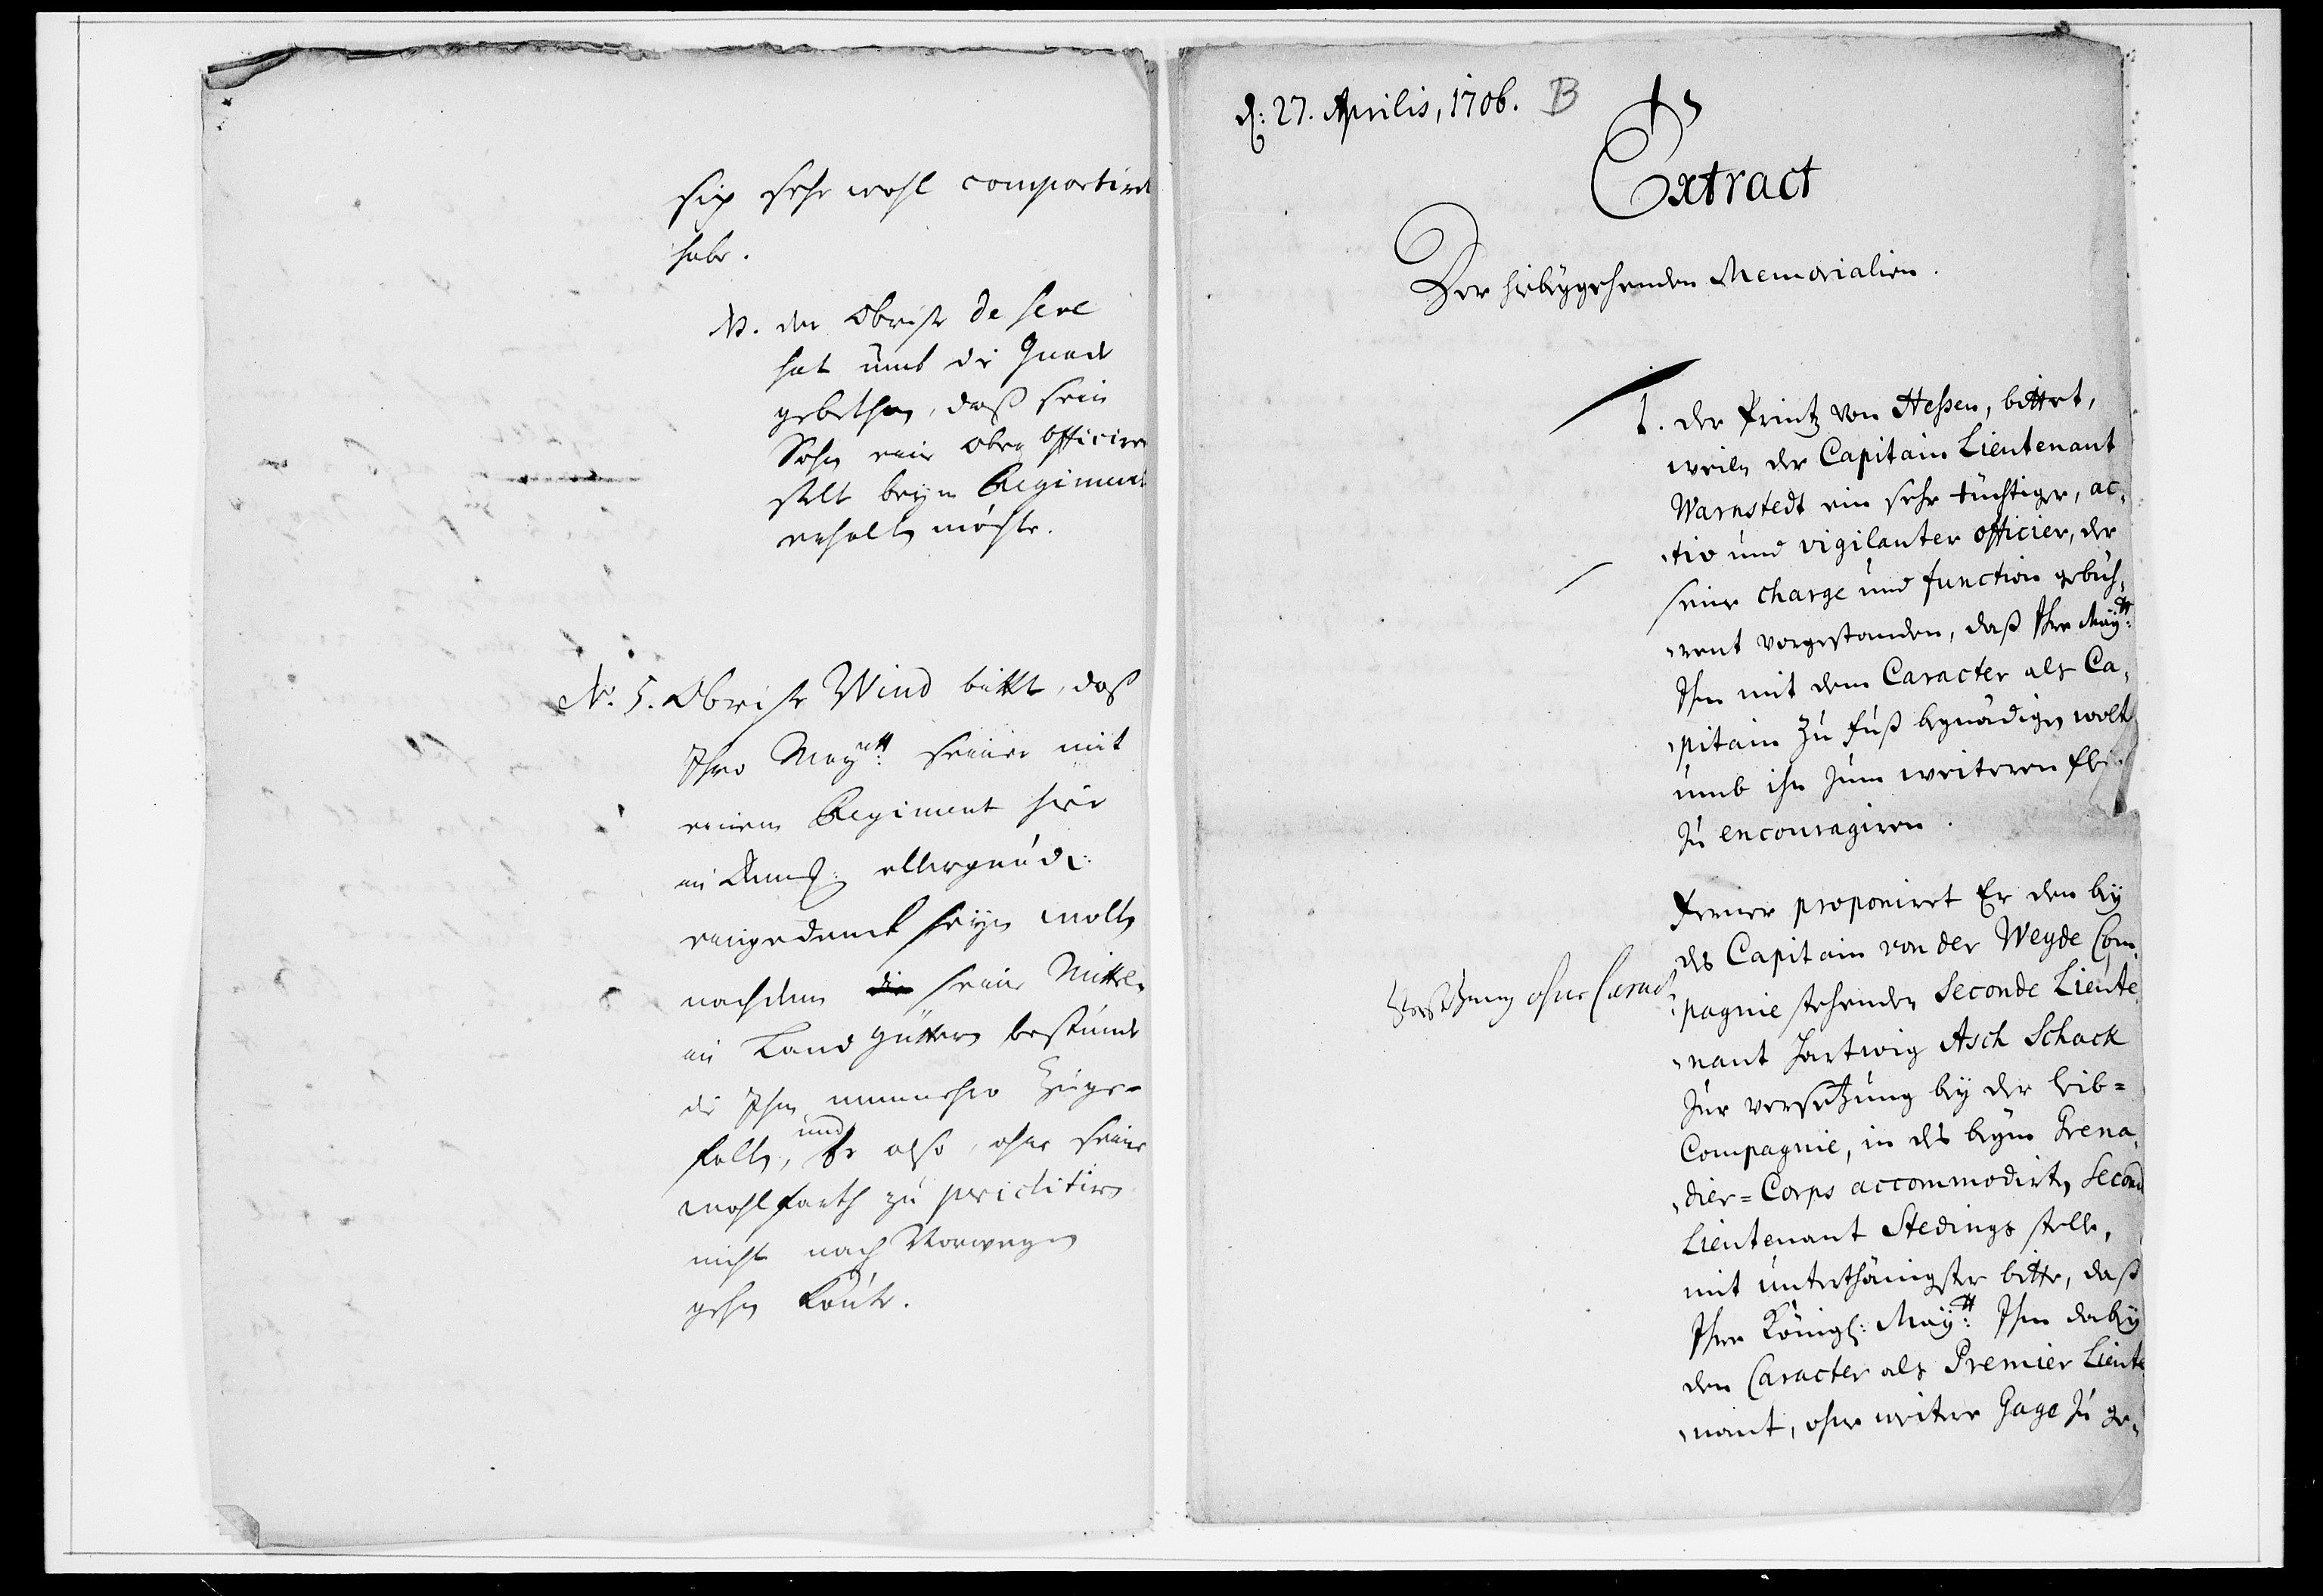 sich sehr wohl comportiret
habe.
NB. der Obriste de Seve
hat umb die Gnade
gebethen, daß sein
Sohn eine Ober Officirer
stelle beym Regiment
erhalten möchte.
No. 5. Obrister Wind bittet, daß
Ihro Maytt: seiner mit
einem Regiment hier
in Dennem: allergnäd:
eingedenck seyn wolte
nachdem die seine Mittel
in Land Gütter bestünde
die Ihm nunmehro zuge-
fallen, und Er also, ohne seine
wohlfarth zu periclitiren
nicht nach Norwegen
gehen könte.
d: 27. Aprilis, 1706. B
Extract
Der hiebeygehenden Memorialien.
1. der Printz von Hessen, bittet,
weiln der Capitain Lieutenant
Warnstedt ein sehr tüchtiger, ac,
,tiv und vigilanter officier, der
seine charge und function gebüh,
,rent vorgestanden, daß Ihre Maÿtt:
Ihn mit dem Caracter als Ca,
,pitain zu Fuß begnädigen wolt
umb ihn zum weiteren
zu encouragiren.
Ferner proponiret Er den beÿ
des Capitain von der Weyde Com
,pagnie stehenden Seconde Lieute
,nant Hartwig Asch Schack
zur versetzung beÿ der leib=
Compagnie, in des beÿm Grena,
,dier=Corps accommodirten Second
Lieutenant Stedings stelle,
mit unterthänigster bitte, daß
Ihre Königl: Maÿtt: Ihm dabeÿ
den Caracter als Premier Lieute
,nant, ohne weitere Gage zu ge,
Versetzung ohne Caract: